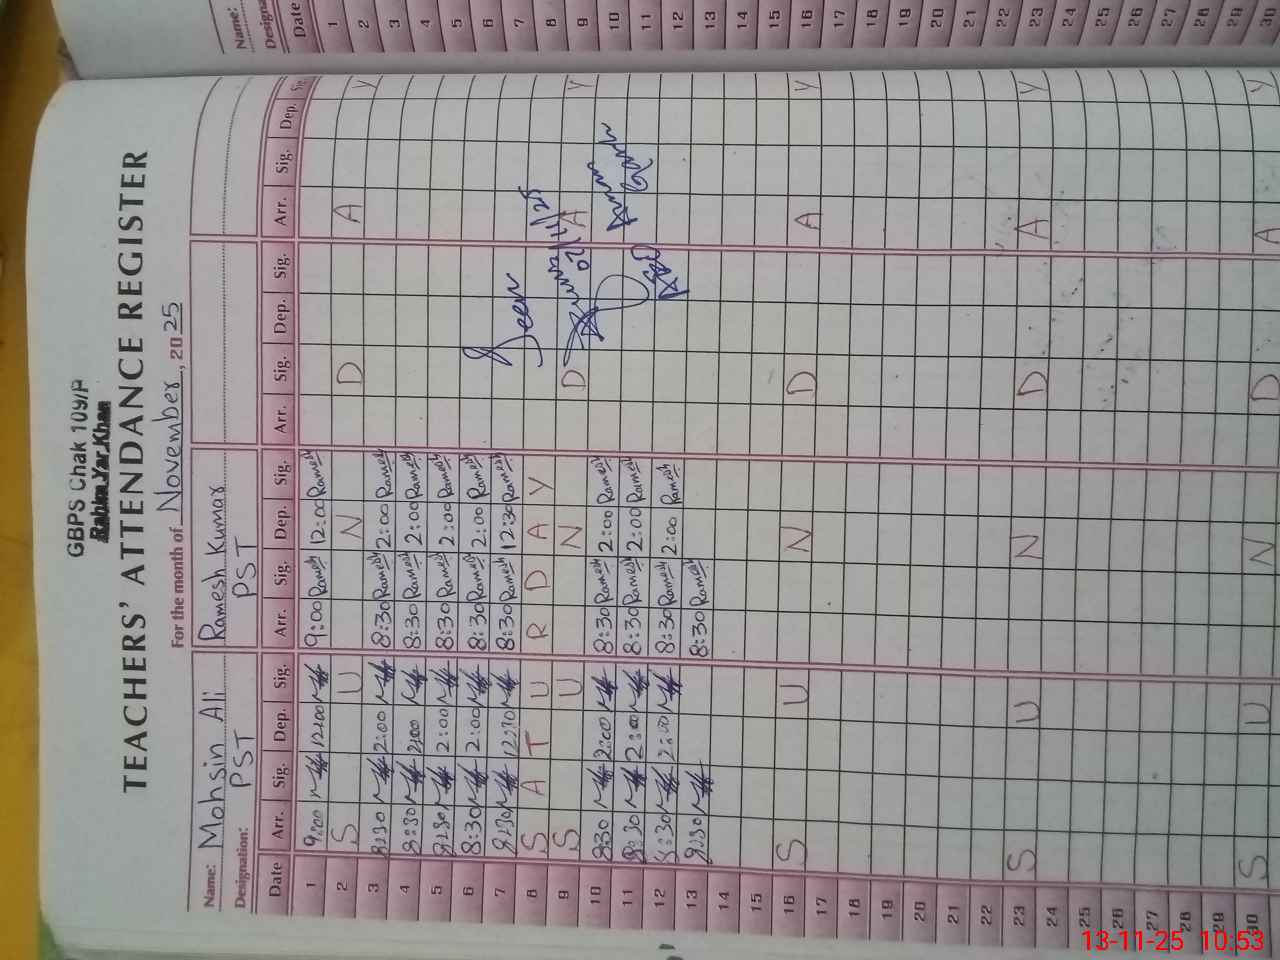 GBPS Chak 109/P
Rahim Yar Khan
TEACHERS' ATTENDANCE REGISTER
For the month of November, 2025
Name: Mohsin Ali Ramesh Kumar
Designation: PST PST
Date Arr. Sig. Dep. Sig. Arr. Sig. Dep. Sig. Arr. Sig. Dep. Sig. Arr. Sig. Dep. Sig.
1 9:00 12:00 9:00 Ramesh 12:00 Ramesh
2 S U N D A Y
3 8:30 2:00 8:30 Ramesh 2:00 Ramesh
4 8:30 2:00 8:30 Ramesh 2:00 Ramesh
5 8:30 2:00 8:30 Ramesh 2:00 Ramesh
6 8:30 2:00 8:30 Ramesh 2:00 Ramesh
7 8:30 12:30 8:30 Ramesh 12:30 Ramesh
Seen
8 S A T U R D A Y
9 S U N D A Y
10 8:30 2:00 8:30 Ramesh 2:00 Ramesh
11 8:30 2:00 8:30 Ramesh 2:00 Ramesh
12 8:30 2:00 8:30 Ramesh 2:00 Ramesh
13 8:30 8:30 Ramesh
14
15
16 S U N D A Y
17
18
19
20
21
22
23 S U N D A Y
24
25
26
27
28
29
30 S U N D A Y
Name:
Designa
Date
1
2
3
4
5
6
7
8
9
10
11
12
13
15
16
17
18
19
20
21
22
23
24
25
26
27
28
29
30
13-11-25 10:53